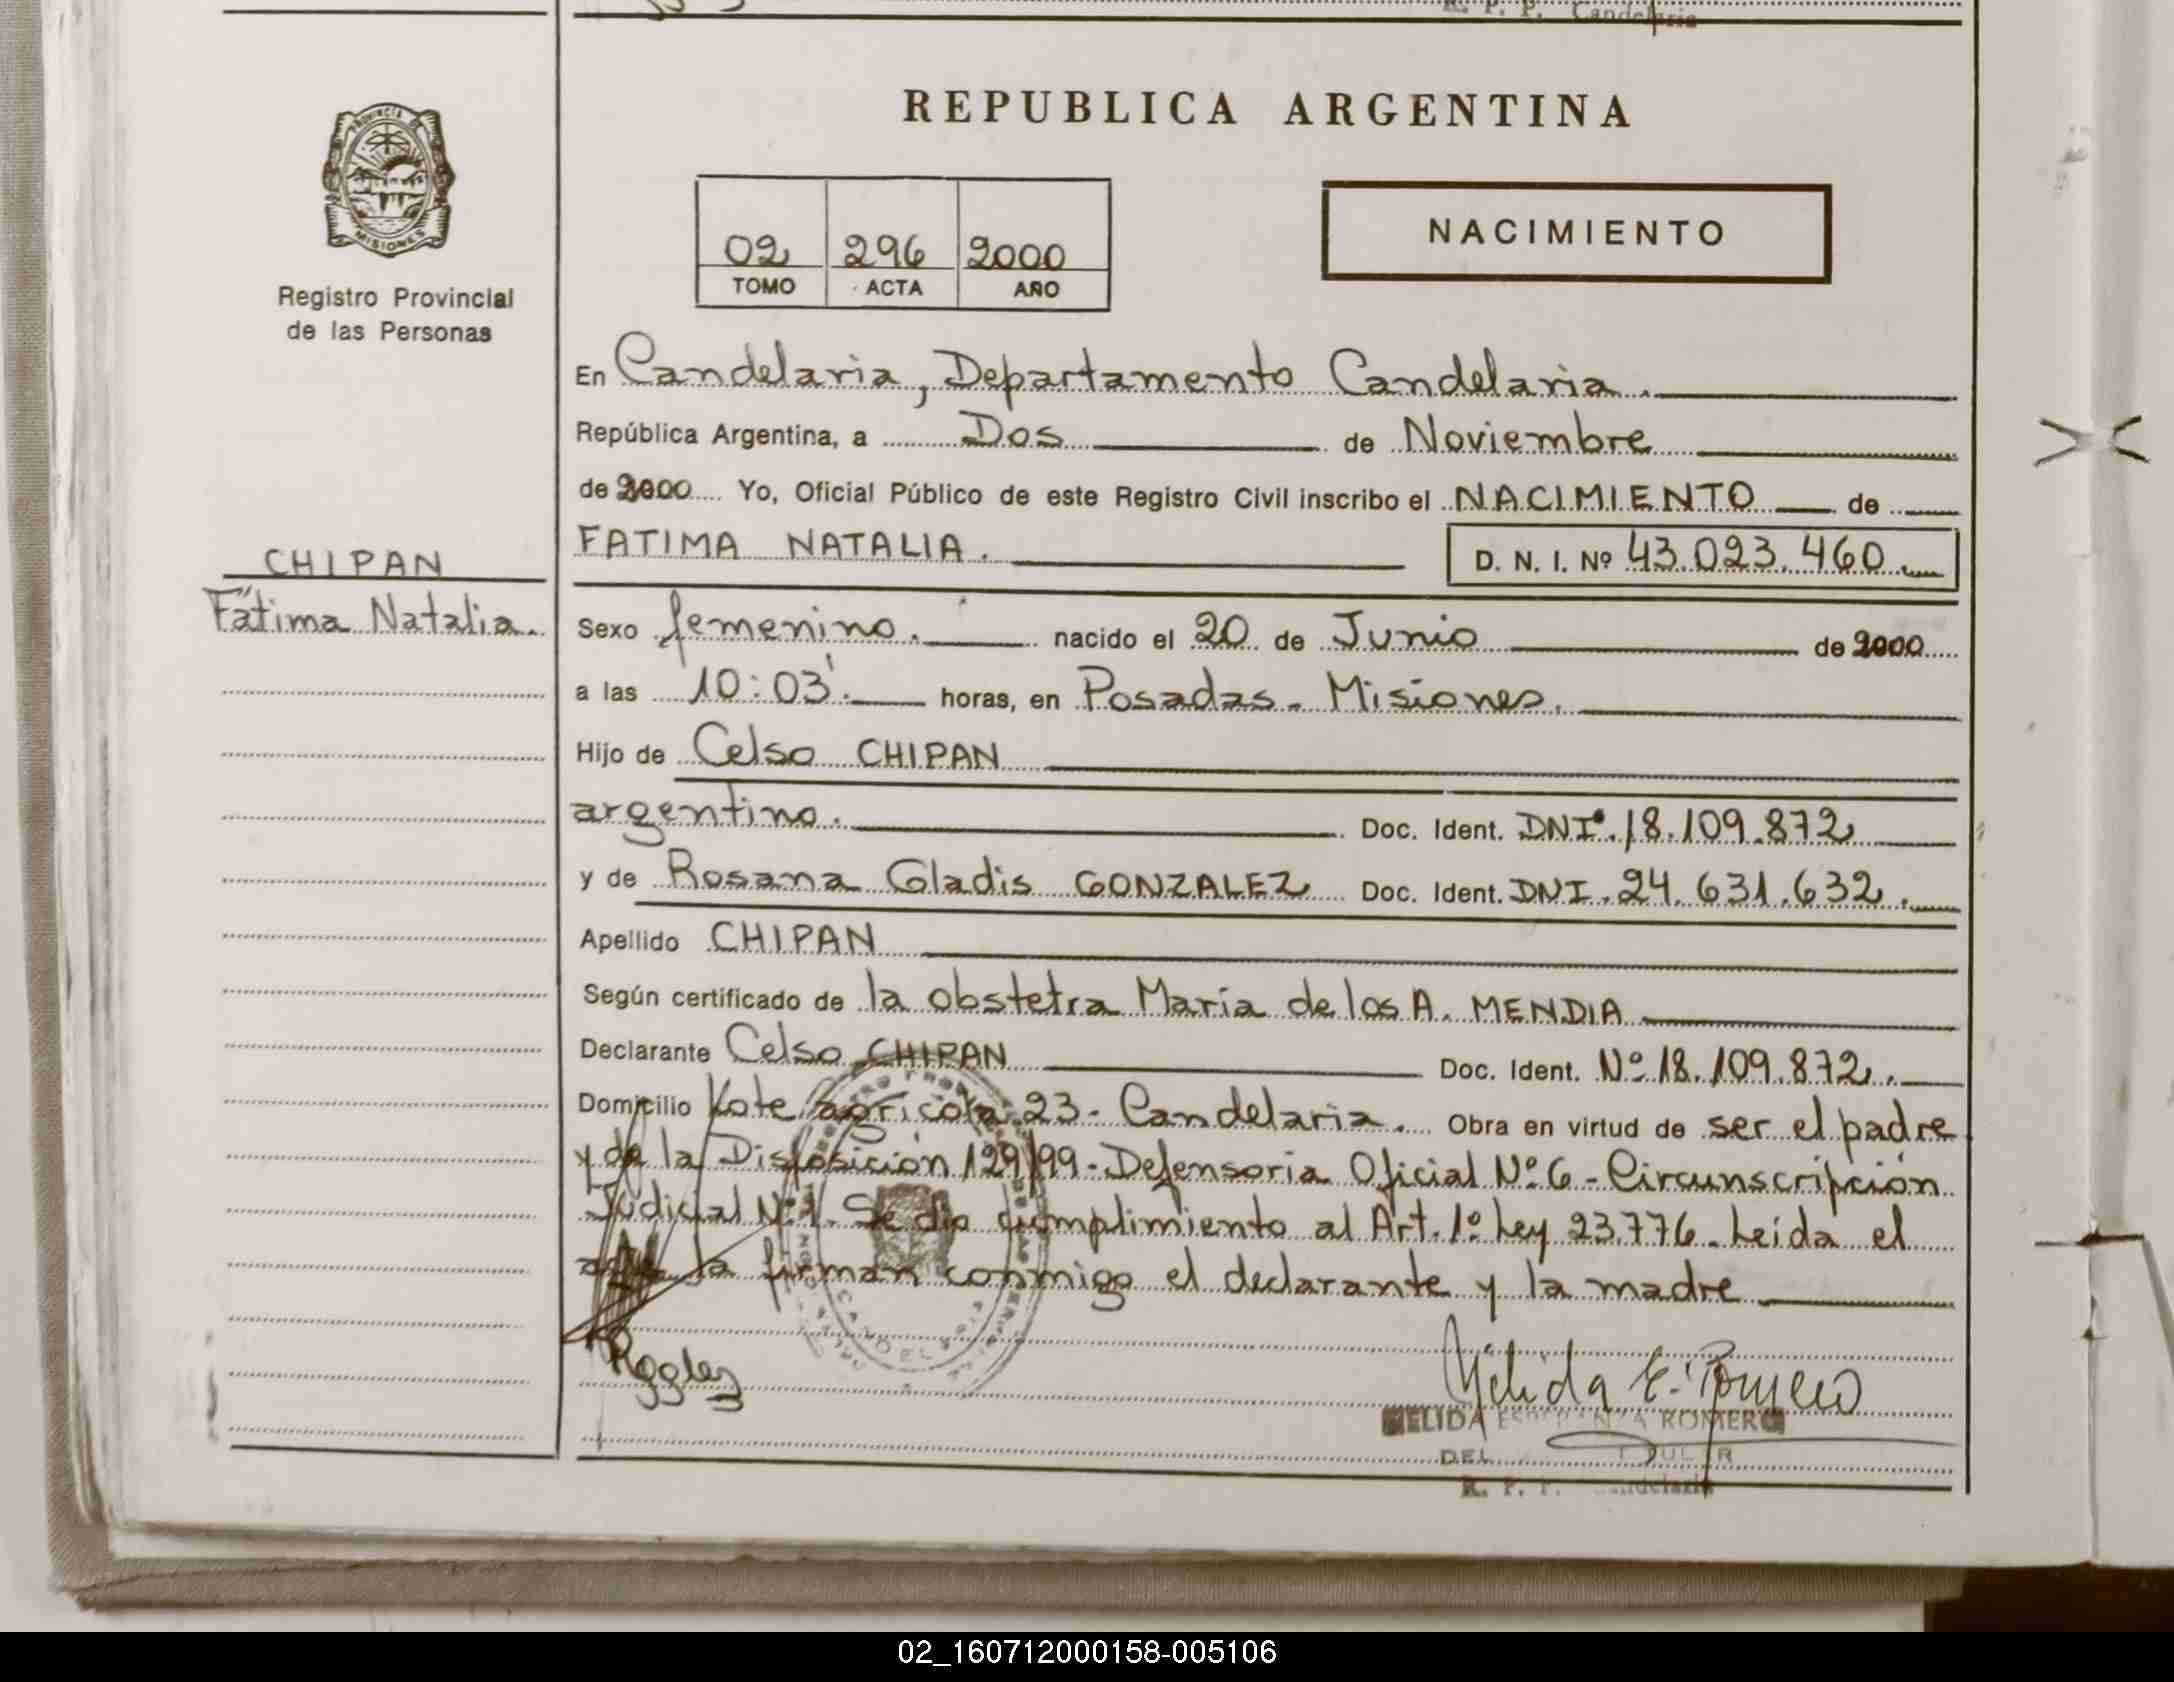 R. P. P. Candelaria
REPUBLICA ARGENTINA
PROVINCIA DE
MISIONES
Registro Provincial
de las Personas
NACIMIENTO
02 296 2000
TOMO ACTA AÑO
En Candelaria, Departamento Candelaria.
República Argentina, a Dos de Noviembre
de 2000 Yo, Oficial Público de este Registro Civil inscribo el NACIMIENTO de
FATIMA NATALIA. D. N. I. Nº 43.023.460.
CHIPAN
Fátima Natalia.
Sexo femenino. nacido el 20 de Junio de 2000
a las 10:03'. horas, en Posadas - Misiones.
Hijo de Celso CHIPAN
argentino. Doc. Ident. DNI. 18.109.872
y de Rosana Gladis GONZALEZ Doc. Ident. DNI. 24.631.632.
Apellido CHIPAN
Según certificado de la obstetra María de los A. MENDIA
Declarante Celso CHIPAN Doc. Ident. Nº 18.109.872.
Domicilio Lote agricola 23 - Candelaria. Obra en virtud de ser el padre
y de la Disposición 129/99 - Defensoria Oficial Nº 6 - Circunscripción
Judicial Nº 1. Se dio cumplimiento al Art. 1º Ley 23.776. Leída el
acta la firman conmigo el declarante y la madre
Nélida E. Romero
NELIDA ESPERANZA ROMERO
R. P. P. Candelaria
02_160712000158-005106